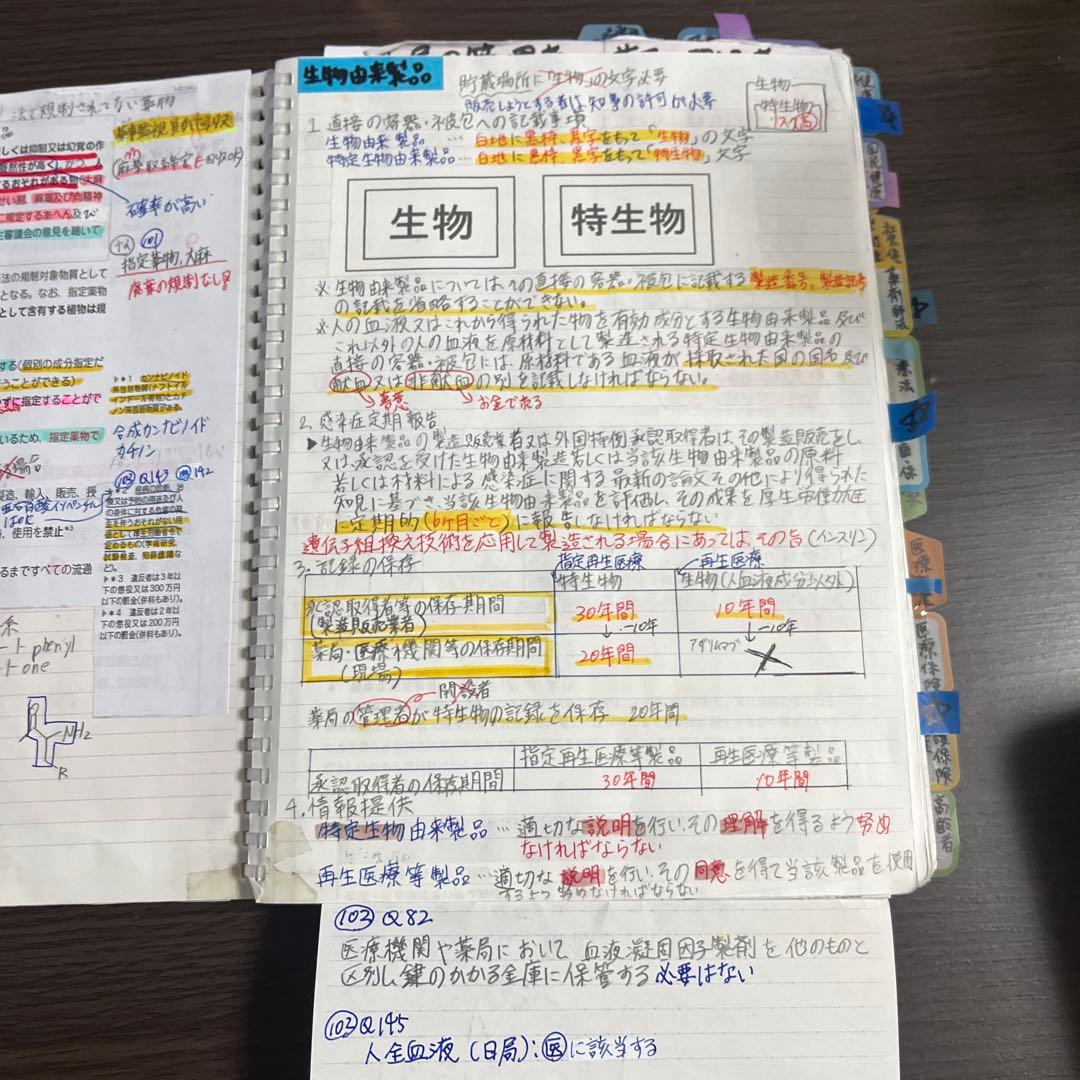 法で規制されてない薬物
しくは抑制又は幻覚の作
するおそれがある物(大麻
せい剤、麻薬及び向精神
に規定するあへん及び
生審議会の意見を聴いて
確率が高い
指定薬物、大麻
廃薬の規制なし
法の規制対象物質として
となる。なお、指定薬物
として含有する植物は規
する(個別の成分指定だ
うことができる)
ずに指定することがで
いるため、指定薬物で
▶*1 カンナビノイド
合成カンナビノイド
カチノン
103 Q143
製造、輸入、販売、授
はOK
、使用を禁止*3
るまですべての流通
▶*3 違反者は3年以
下の懲役又は300万円
以下の罰金(併科もあり)。
▶*4 違反者は2年以
下の懲役又は200万円
以下の罰金(併科もあり)。
phenyl
one
NH2
R
生物由来製品
貯蔵場所に「生物」の文字必要
販売しようとする者は知事の許可が必要
生物
特生物
リスク高
1 直接の容器・被包への記載事項
生物由来製品 … 白地に黒枠、黒字をもって「生物」の文字
特定生物由来製品… 白地に黒枠、黒字をもって「特生物」文字
生物
特生物
※ 生物由来製品についてはその直接の容器・被包に記載する製造番号、製造記号
の記載を省略することができない。
※人の血液又はこれから得られた物を有効成分とする生物由来製品及び
これ以外の人の血液を原材料として製造される特定生物由来製品の
直接の容器・被包には、原材料である血液が採取された国の国名及び
献血又は非献血の別を記載しなければならない。
善意
お金で売る
2. 感染症定期報告
▶生物由来製品の製造販売業者又は外国特例承認取得者は、その製造販売をし
又は承認を受けた生物由来製品若しくは当該生物由来製品の原料
若しくは材料による感染症に関する最新の論文その他により得られた
知見に基づき当該生物由来製品を評価し、その成果を厚生労働大臣
に定期的(6ヶ月ごと)に報告しなければならない
遺伝子組換え技術を応用して製造される場合にあっては、その旨(インスリン)
3. 記録の保存
指定再生医療
再生医療
特生物
生物(人血液成分以外)
承認取得者等の保存期間
(製造販売業者)
30年間
10年間
↓-10年
↓-10年
薬局・医療機関等の保存期間
(現場)
20年間
アダリムマブ
開設者
薬局の管理者が特生物の記録を保存 20年間
指定再生医療等製品
再生医療等製品
承認取得者の保存期間
30年間
10年間
4. 情報提供
特定生物由来製品 … 適切な説明を行い、その理解を得るよう努め
なければならない
再生医療等製品 …適切な説明を行い、その同意を得て当該製品を使用
するよう努めなければならない
103 Q82
医療機関や薬局において、血液凝固因子製剤を他のものと
区別し鍵のかかる金庫に保管する必要はない
103 Q145
人全血液(日局):医に該当する
国民健康
薬剤師法
療法
国保
医療
医療保険
保険
高齢者